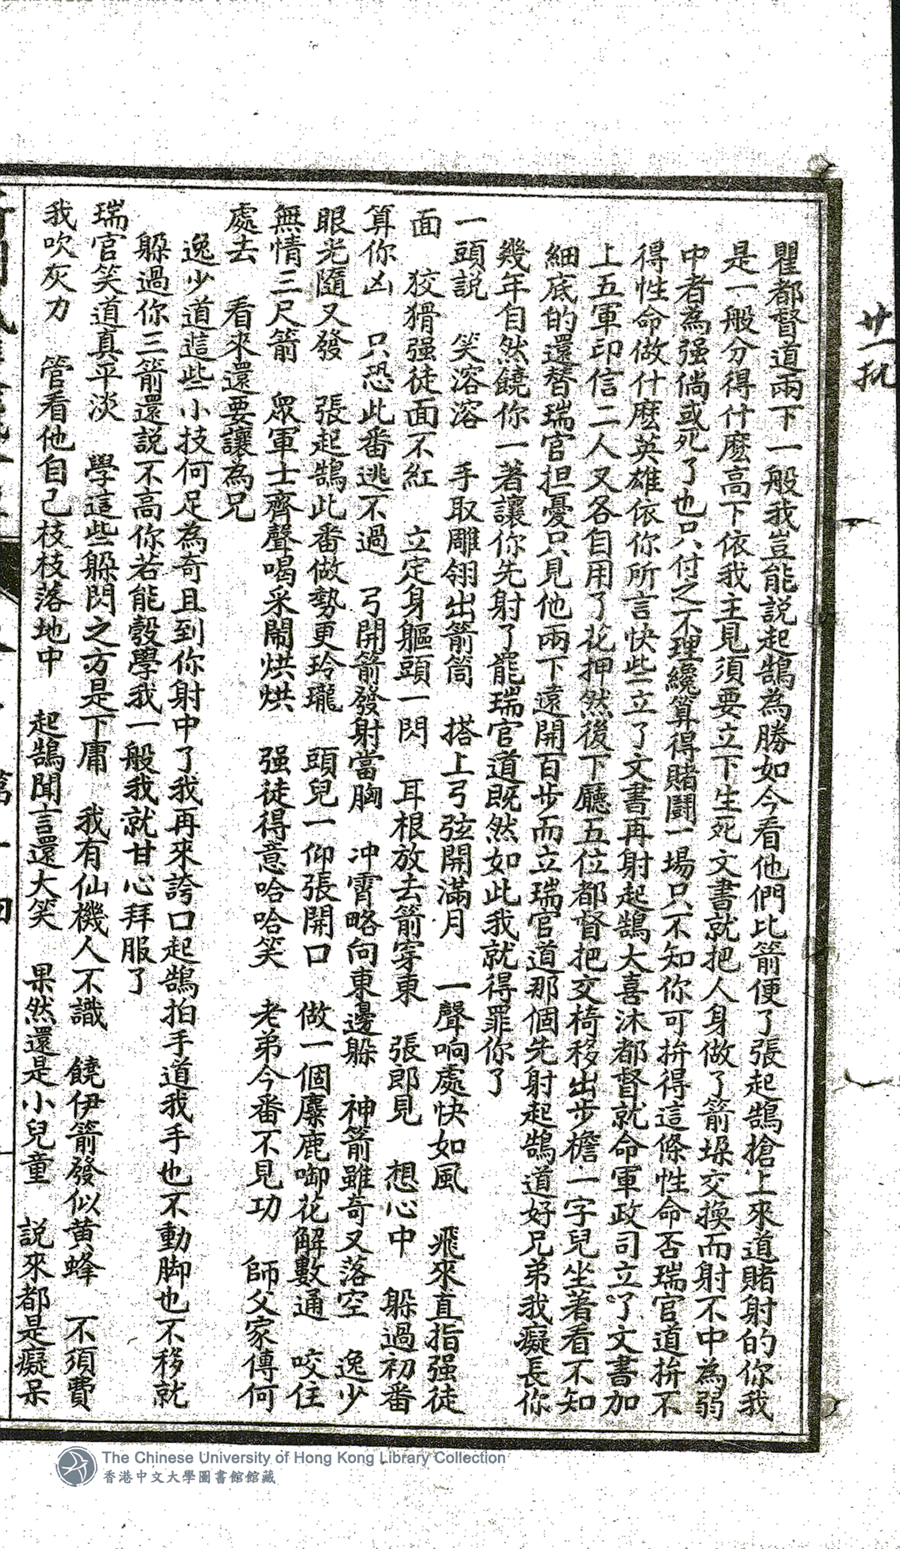 廿一批
瞿都督道兩下一般我豈能說起鵠為勝如今看他們比箭便了張起鵠搶上來道賭射的你我
是一般分得什麽高下依我主見須要立下生死文書就把人身做了箭垛交換而射不中為弱
中者為强倘或死了也只付之不理纔算得賭鬪一場只不知你可拚得這條性命否瑞官道拚不
得性命做什麽英雄依你所言快些立了文書再射起鵠大喜沐都督就命軍政司立了文書加
上五軍印信二人又各自用了花押然後下廳五位都督把交椅移出步檐一字兒坐著看不知
細底的還替瑞官担憂只見他兩下遠開百步而立瑞官道那個先射起鵠道好兄弟我癡長你
幾年自然饒你一著讓你先射了罷瑞官道既然如此我就得罪你了
一頭說　笑溶溶　手取雕翎出箭筒　搭上弓弦開滿月　一聲响處快如風　飛來直指强徒
面　狡猾强徒面不紅　立定身軀頭一閃　耳根放去箭穿東　張郎見　想心中　躲過初番
算你凶　只恐此番逃不過　弓開箭發射當胸　冲霄略向東邊躲　神箭雖奇又落空　逸少
眼光隨又發　張起鵠此番做勢更玲瓏　頭兒一仰張開口　做一個麋鹿啣花解數通　咬住
無情三尺箭　眾軍士齊聲喝采鬧烘烘　强徒得意哈哈笑　老弟今番不見功　師父家傳何
處去　看來還要讓為兄
逸少道這些小技何足為奇且到你射中了我再來誇口起鵠拍手道我手也不動脚也不移就
躲過你三箭還説不高你若能彀學我一般我就甘心拜服了
瑞官笑道真平淡　學這些躲閃之方是下庸　我有仙機人不識　饒伊箭發似黃蜂　不須費
我吹灰力　管看他自己枝枝落地中　起鵠聞言還大笑　果然還是小兒童　説來都是癡呆
第十四
The Chinese University of Hong Kong Library Collection
香港中文大學圖書館館藏